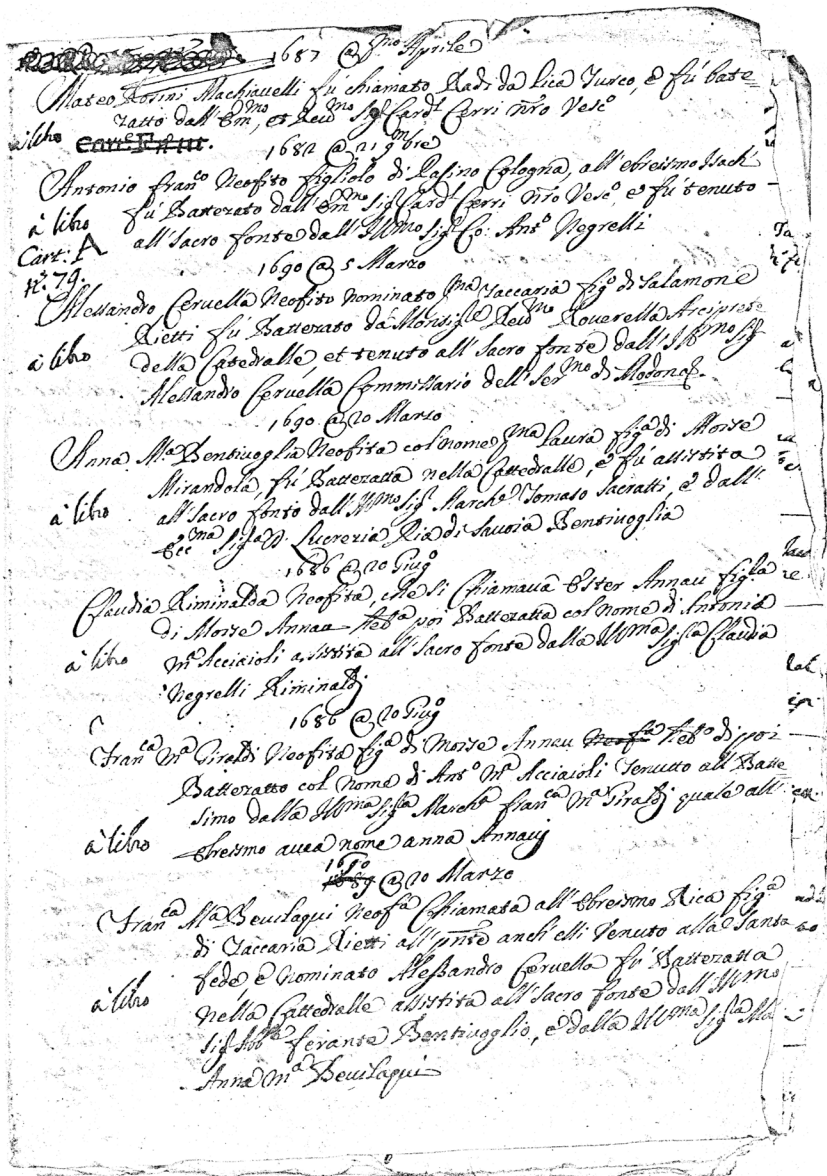 1687 @ pmo Aprile
Mateo Rosini Machiavelli fú chiamato Radi da Lica Turco, e fú bate=
zatto dall'Emmo, et Revmo Sigr Cardl Cerri nro Vesco
à libro
1682 @ 21 9mbre
Antonio Franco Neofito figliolo di Rafino Cologna, all'ebreismo Isach
fú Battezato dall'Emmo Sigr Cardl Cerri nro Vesco e fú tenuto
à libro
all Sacro fonte dall'Illmo Sigr Co: Anto Negrelli
Cart: A
No. 79.
1690 @ 5 Marzo
Alessandro Cervella Neofito nominato pma Zaccaria figo di Salamone
Rietti fú Battezato da Monsigre Revmo Roverella Arciprete
à libro
della Catedralle, et tenuto all Sacro fonte dall'Illmo Sigr
Alessandro Cervella Commissario dell'Sermo di Modona.
1690 @ 20 Marzo
Anna Ma Bentivoglia Neofita col nome pma Laura figa di Moise
Mirandola, fú Battezatta nella Cattedralle, e fú assistita
à libro
all Sacro fonte dall'Illmo Sigr Marche Tomaso Sacratti, e dall'
Eccma Siga D. Lucrezia Pia di Savoia Bentivoglia
1686 @ 20 Giugo
Claudia Riminalda Neofita, che si Chiamava Ester Annau figla
di Moise Annau Heba poi Battezatta col nome di Antonio
à libro
Ma Acciaioli assistita all Sacro fonte dalla Illma Sigra Claudia
Negrelli Riminaldi
1686 @ 20 Giugo
Franca Ma Giraldi Neofita figa di Moise Annau Neofta Hebo di poi
Battezatto col nome di Anto Ma Acciaioli Tenutto all Batte=
simo dalla Illma Sigra Marcha Franca Ma Giraldi quale all'
à libro
Ebreismo avea nome anna Annau
1690
1689 @ 20 Marzo
Franca Ma Bevilaqui Neofa Chiamata all'Ebreismo Rica figa
di Zaccaria Rietti all pnte anch'elli Venuto alla Santa
fede e nominato Alessandro Cervella fú Battezatta
à libro
nella Cattedralle assistita all Sacro fonte dall'Illmo
Sigr Abbe ferante Bentivoglio, e dalla Illma Sigra Ma
Anna Ma Bevilaqui